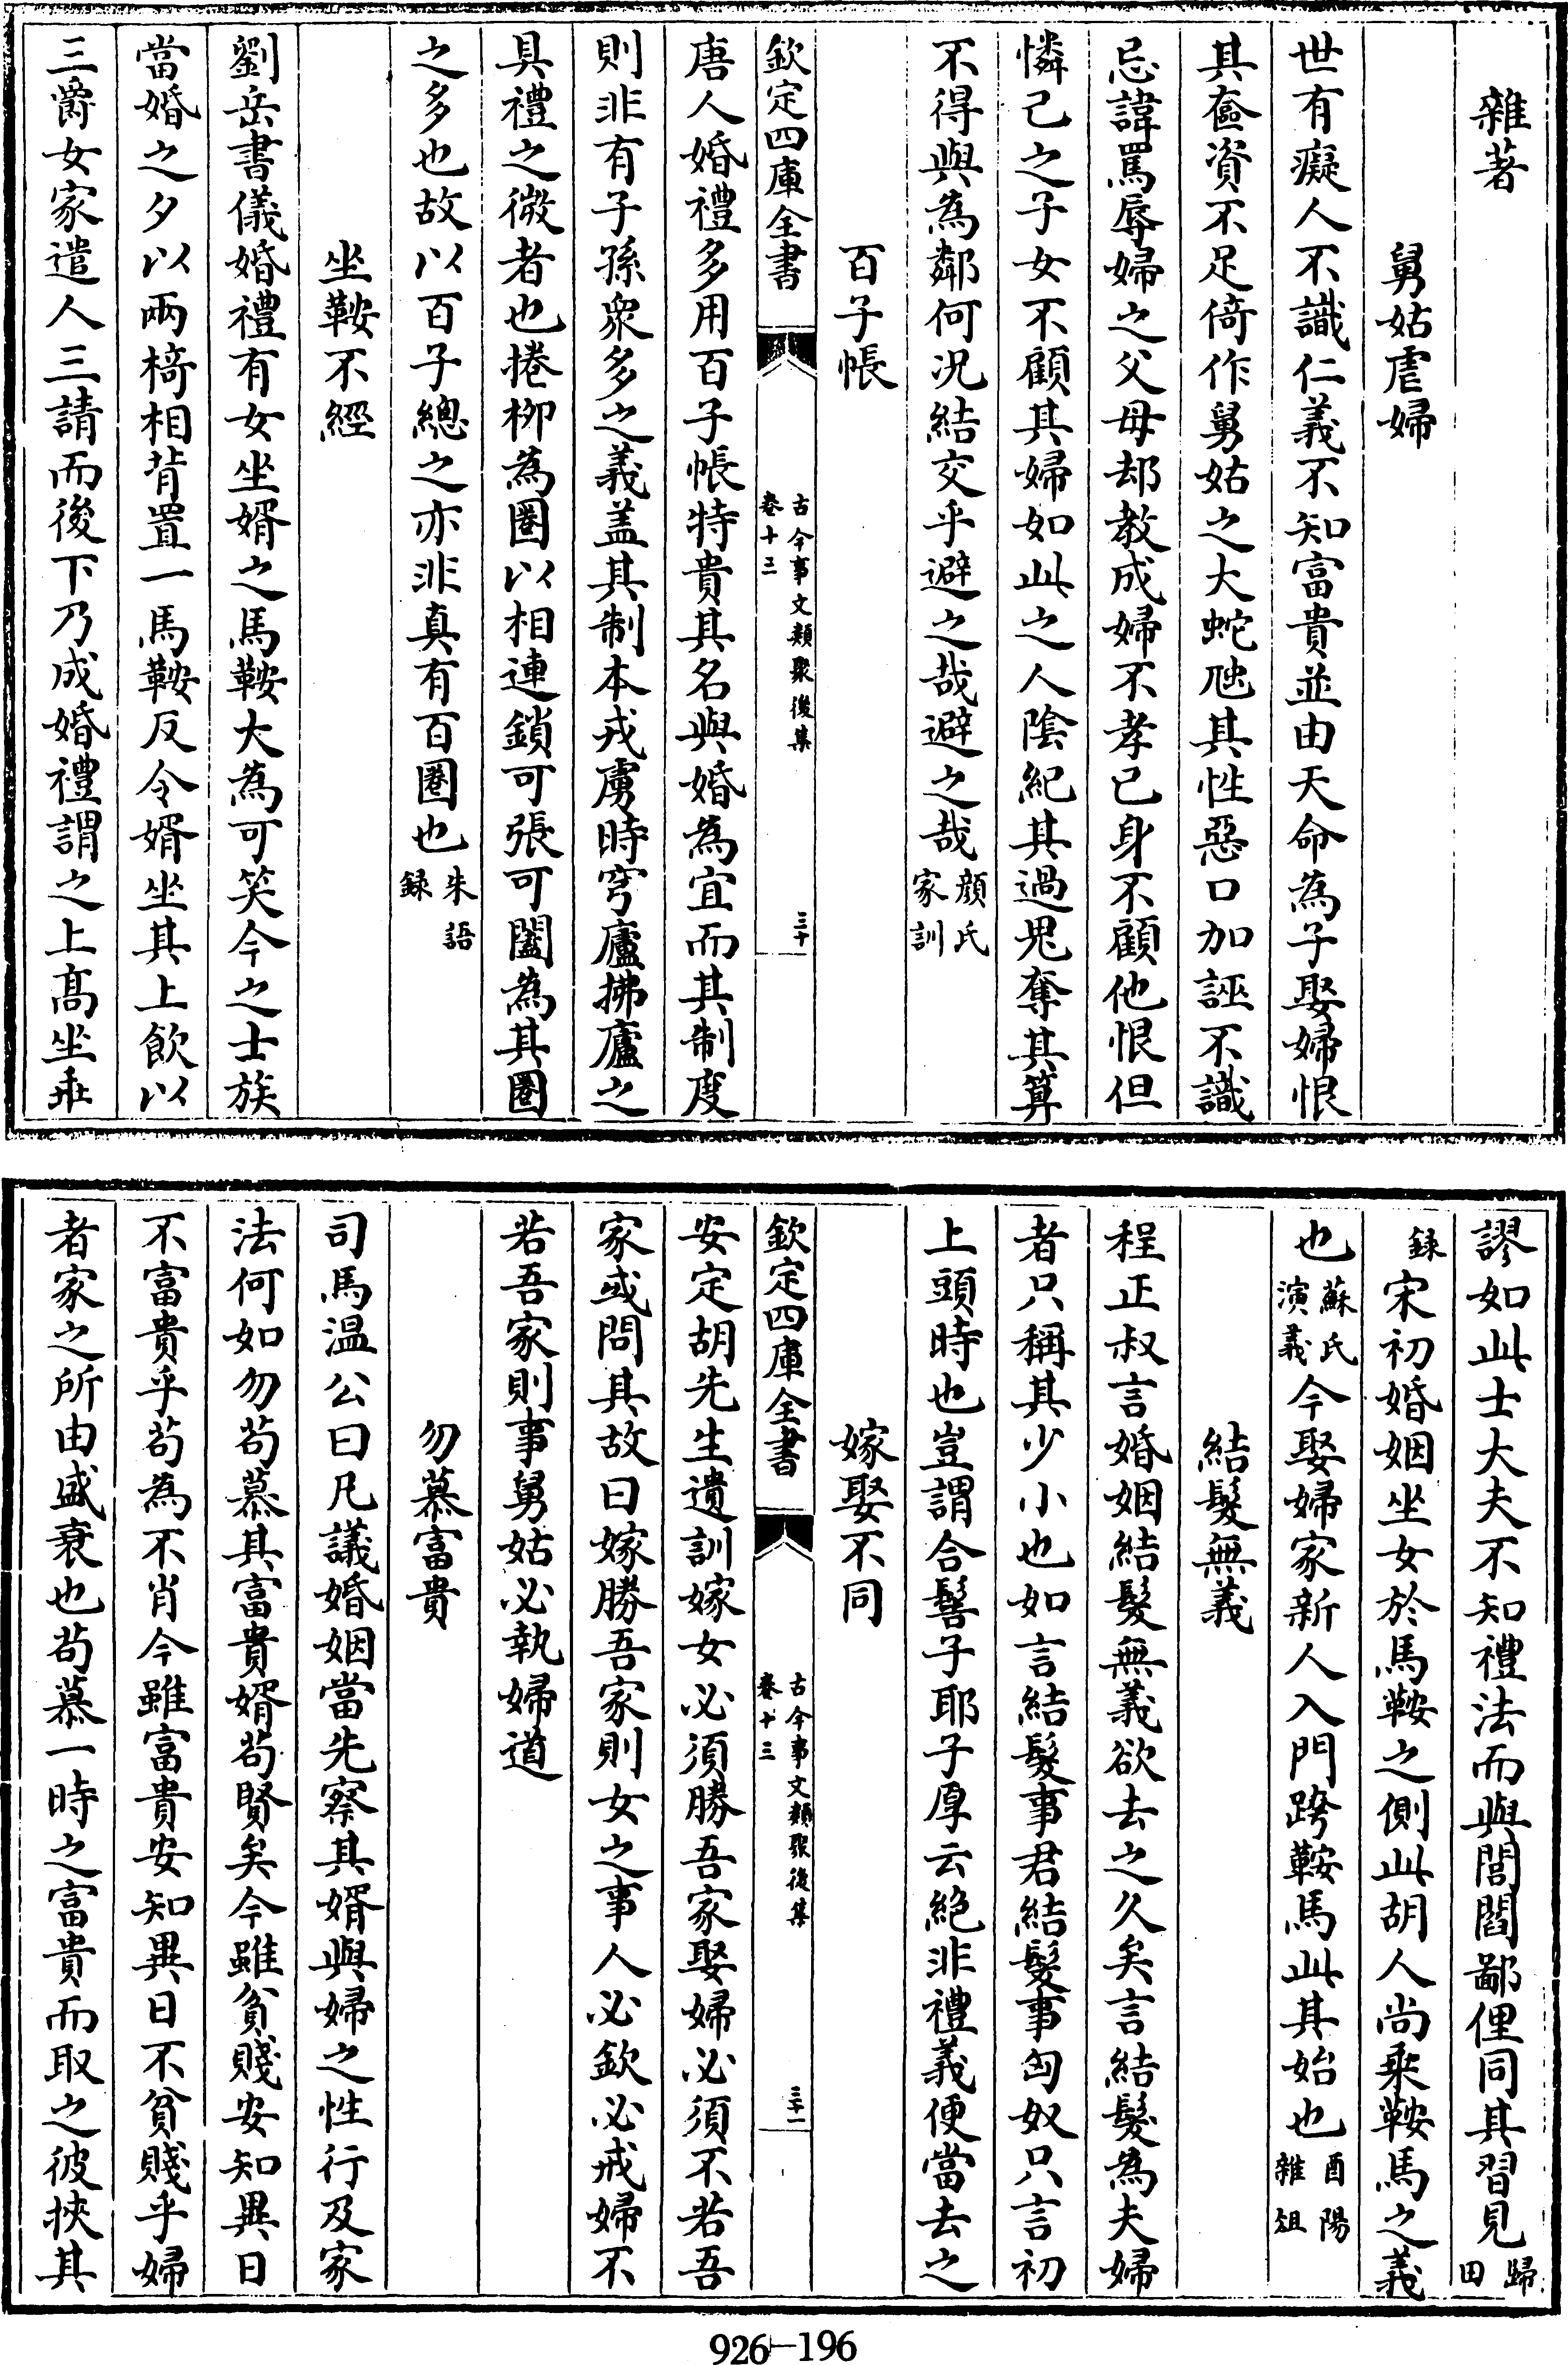 雜著
舅姑虐婦
世有癡人不識仁義不知富貴並由天命為子娶婦恨
其奩資不足倚作舅姑之大蛇虺其性惡口加誣不識
忌諱罵辱婦之父母却教成婦不孝己身不顧他恨但
憐己之子女不顧其婦如此之人陰紀其過鬼奪其算
不得與為鄰何况結交乎避之哉避之哉顏氏家訓
百子帳
欽定四庫全書 古今事文類聚後集 卷十三 三十
唐人婚禮多用百子帳特貴其名與婚為宜而其制度
則非有子孫衆多之義盖其制本戎虜時穹廬拂廬之
具禮之微者也捲柳為圈以相連鎖可張可闔為其圈
之多也故以百子總之亦非真有百圈也朱語錄
坐鞍不經
劉岳書儀婚禮有女坐婿之馬鞍大為可笑今之士族
當婚之夕以兩椅相背置一馬鞍反令婿坐其上飲以
三爵女家遣人三請而後下乃成婚禮謂之上高坐乖
謬如此士大夫不知禮法而與閭閻鄙俚同其習見歸田
錄宋初婚姻坐女於馬鞍之側此胡人尚乘鞍馬之義
也蘇氏演義今娶婦家新人入門跨鞍馬此其始也酉陽雜俎
結髮無義
程正叔言婚姻結髮無義欲去之久矣言結髮為夫婦
者只稱其少小也如言結髮事君結髮事匈奴只言初
上頭時也豈謂合髻子耶子厚云絕非禮義便當去之
嫁娶不同
欽定四庫全書 古今事文類聚後集 卷十三 三十一
安定胡先生遺訓嫁女必須勝吾家娶婦必須不若吾
家或問其故曰嫁勝吾家則女之事人必欽必戒婦不
若吾家則事舅姑必執婦道
勿慕富貴
司馬温公曰凡議婚姻當先察其婿與婦之性行及家
法何如勿苟慕其富貴婿苟賢矣今雖貧賤安知異日
不富貴乎苟為不肖今雖富貴安知異日不貧賤乎婦
者家之所由盛衰也苟慕一時之富貴而取之彼挾其
926-196